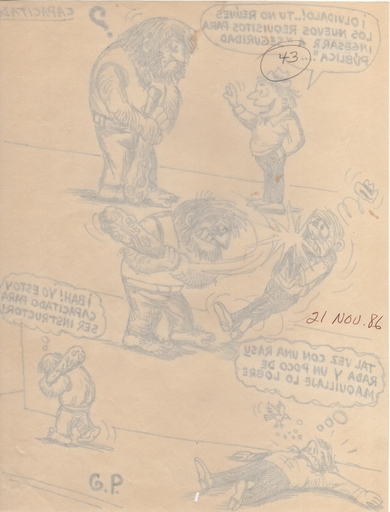 CAPACITAD
?
¡OLVIDALO!...TU NO REUNES
LOS NUEVOS REQUISITOS PARA
INGRESAR A "SEGURIDAD
PÚBLICA"...
43
21 NOV. 86
¡BAH! YO ESTOY
CAPACITADO PARA
SER INSTRUCTOR!
TAL VEZ CON UNA RASU
RADA Y UN POCO DE
MAQUILLAJE LO LOGRE
G.P.